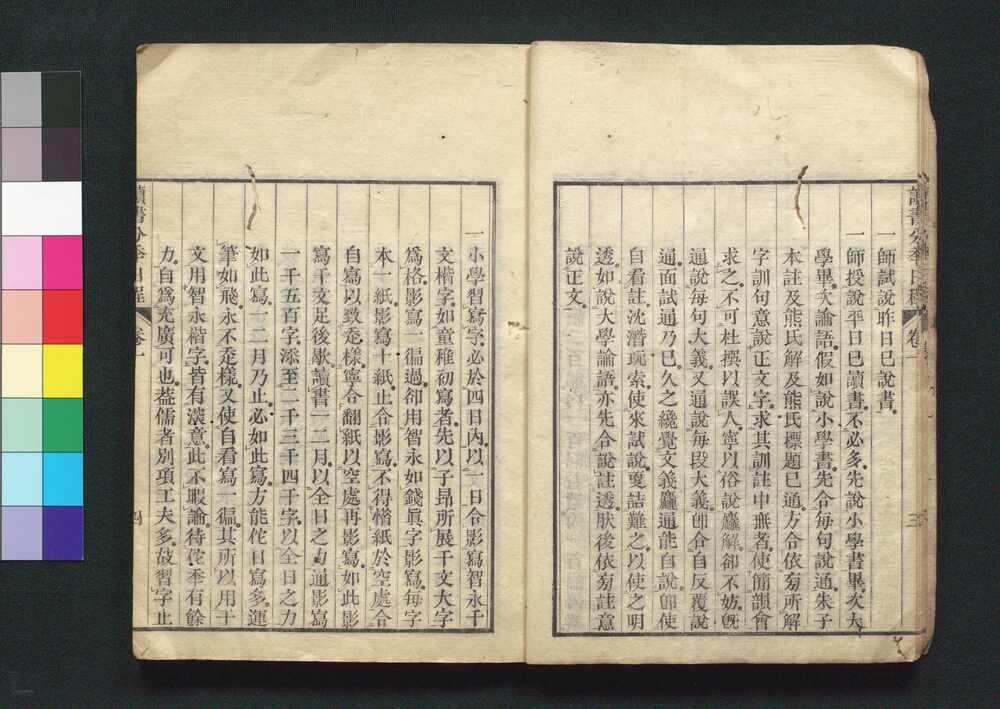 讀書分秊日程 卷一 三
一師試說昨日已說書
一師授說平日已讀書不必多先說小學書畢次大
學畢次論語假如說小學書先令每句說通朱子
本註及熊氏解及熊氏標題已通方令依𠊓所解
字訓句意說正文字求其訓註中無者使簡韻會
求之不可杜撰以誤人寧以俗說麤解卻不妨旣
通說每句大義又通說每段大義卽令自反覆說
通面試通乃已久之纔覺文義麤通能自說卽使
自看註沈潛玩索使來試說更詰難之以使之明
透如說大學論語亦先令說註透肰後依𠊓註意
說正文
一小學習寫字必於四日內以一日令影寫智永千
文楷字如童稚初寫者先以子昻所展千文大字
爲格影寫一徧過卻用智永如錢眞字影寫每字
本一紙影寫十紙止令影寫不得惜紙於空處令
自寫以致走樣寧令翻紙以空處再影寫如此影
寫千文足後歇讀書一二月以全日之力通影寫
一千五百字添至二千三千四千字以全日之力
如此寫一二月乃止必如此寫方能佗日寫多運
筆如飛永不走樣又使自看寫一徧其所以用千
文用智永楷字皆有深意此不暇論待佗秊有餘
力自爲充廣可也葢儒者別項工夫多故習字止
讀書分秊日程 卷一 四